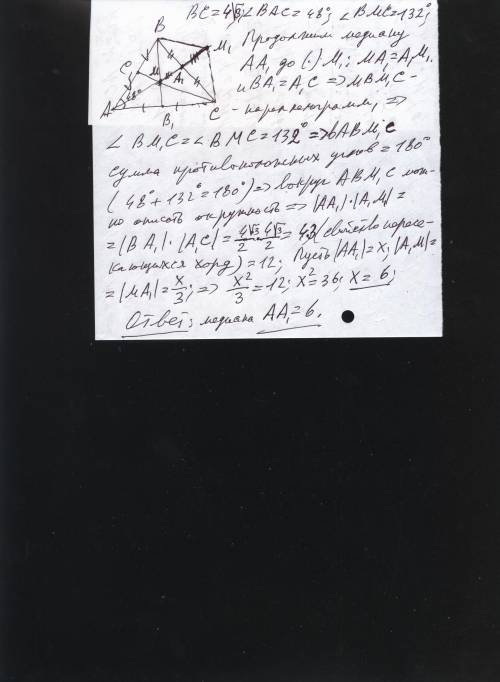 BC=4√3; ∠BAC=48°; ∠BMC=132°;
Продолжим медиану
AA₁ до (·) M₁; MA₁=A₁M₁.
и BA₁=A₁C => MBM₁C-
- параллелограмм, =>
∠BM₁C=∠BMC=132° => в ABM₁C
сумма противоположных углов=180°
(48°+132°=180°) => вокруг ABM₁C мож-
но описать окружность => |AA₁|·|A₁M|=
=|BA₁|·|AC|=4√3/2·4√3/2=4·3 (свойство пересе-
кающихся хорд)=12; Пусть |AA₁|=x; |A₁M|=
=|MA₁|=x/3; => x²/3=12; x²=36; x=6;
Ответ: медиана AA₁=6.
B
M₁
C₁
M
A₁
4
4
A
48°
B₁
C